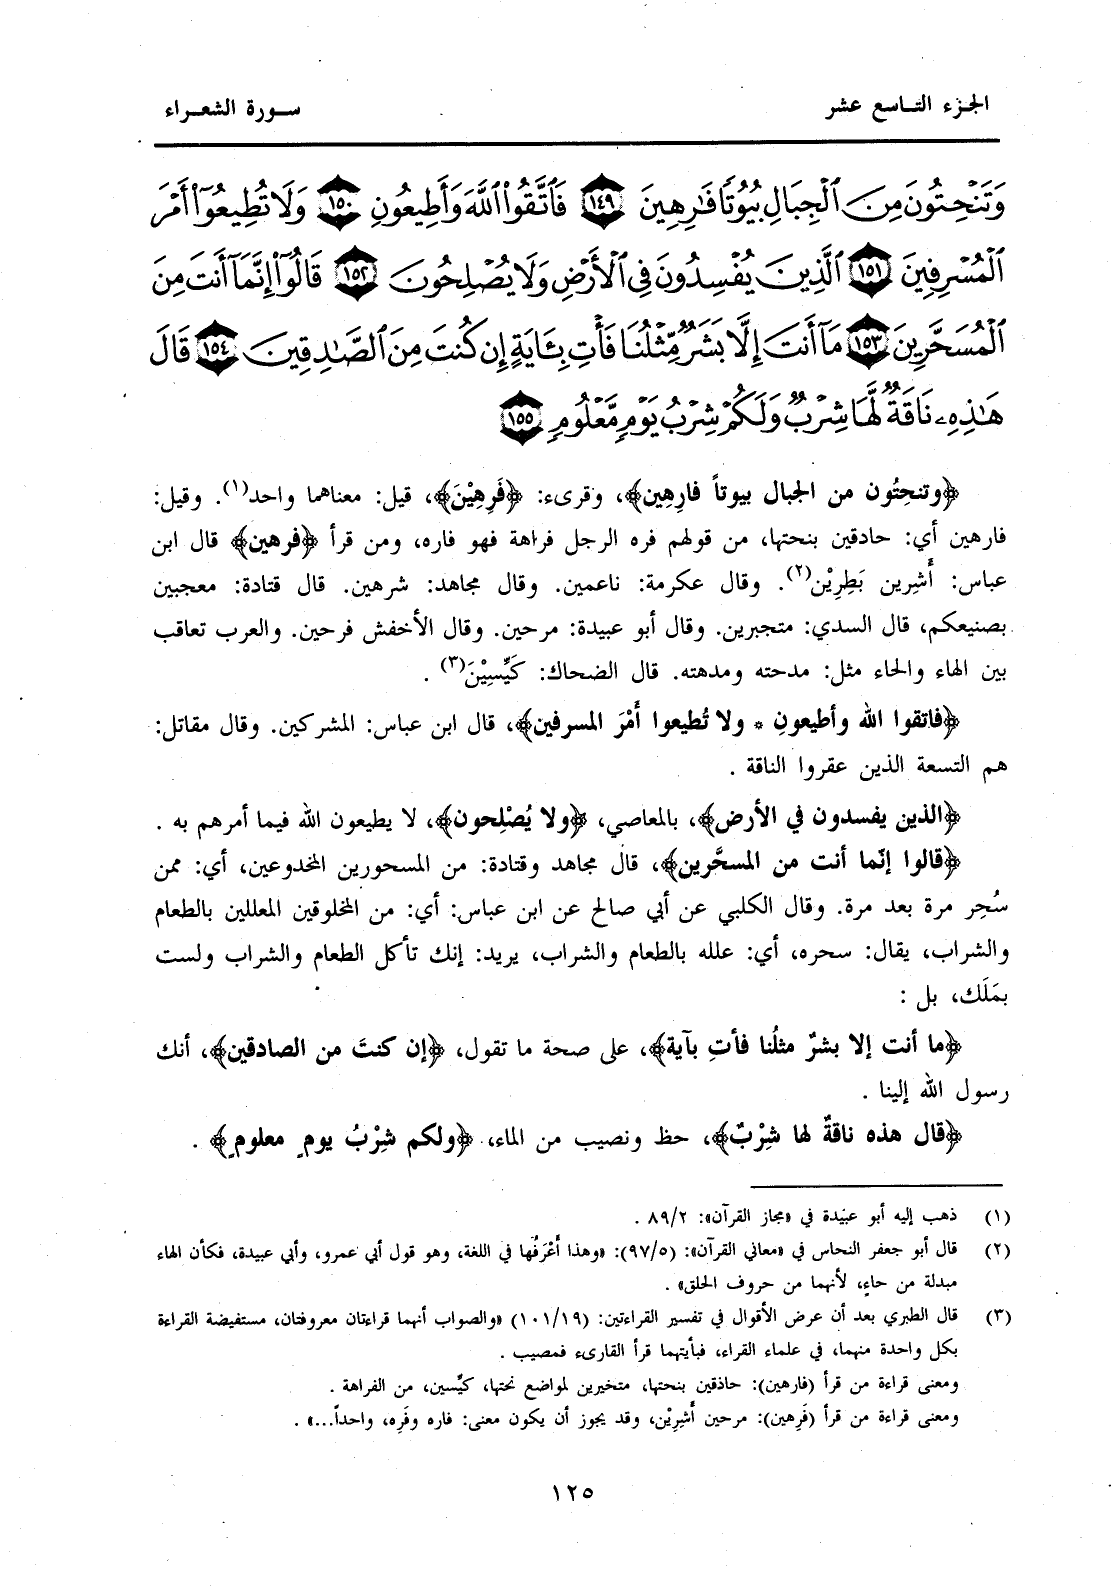 الجزء التاسع عشر
سورة الشعراء
وَتَنْحِتُونَ مِنَ ٱلْجِبَالِ بُيُوتًا فَٰرِهِينَ ١٤٩ فَٱتَّقُوا۟ ٱللَّهَ وَأَطِيعُونِ ١٥٠ وَلَا تُطِيعُوٓا۟ أَمْرَ
ٱلْمُسْرِفِينَ ١٥١ ٱلَّذِينَ يُفْسِدُونَ فِى ٱلْأَرْضِ وَلَا يُصْلِحُونَ ١٥٢ قَالُوٓا۟ إِنَّمَآ أَنتَ مِنَ
ٱلْمُسَحَّرِينَ ١٥٣ مَآ أَنتَ إِلَّا بَشَرٌ مِّثْلُنَا فَأْتِ بِـَٔايَةٍ إِن كُنتَ مِنَ ٱلصَّٰدِقِينَ ١٥٤ قَالَ
هَٰذِهِۦ نَاقَةٌ لَّهَا شِرْبٌ وَلَكُمْ شِرْبُ يَوْمٍ مَّعْلُومٍ ١٥٥
﴿وتنحِتُون من الجبال بيوتاً فارِهين﴾، وقرىء: ﴿فَرِهِيْنَ﴾، قيل: معناهما واحد(١). وقيل:
فارهين أي: حادقين بنحتها، من قولهم فره الرجل فراهة فهو فاره، ومن قرأ ﴿فرهين﴾ قال ابن
عباس: أَشِرين بَطِرِيْن(٢). وقال عكرمة: ناعمين. وقال مجاهد: شرهين. قال قتادة: معجبين
بصنيعكم، قال السدي: متجبرين. وقال أبو عبيدة: مرحين. وقال الأخفش فرحين. والعرب تعاقب
بين الهاء والحاء مثل: مدحته ومدهته. قال الضحاك: كَيِّسِيْنَ(٣) .
﴿فاتقوا الله وأطيعونِ * ولا تُطيعوا أَمْرَ المسرفين﴾، قال ابن عباس: المشركين. وقال مقاتل:
هم التسعة الذين عقروا الناقة .
﴿الذين يفسدون في الأرض﴾، بالمعاصي، ﴿ولا يُصْلِحون﴾، لا يطيعون الله فيما أمرهم به .
﴿قالوا إنّما أنت من المسحَّرين﴾، قال مجاهد وقتادة: من المسحورين المخدوعين، أي: ممن
سُحِر مرة بعد مرة. وقال الكلبي عن أبي صالح عن ابن عباس: أي: من المخلوقين المعللين بالطعام
والشراب، يقال: سحره، أي: علله بالطعام والشراب، يريد: إنك تأكل الطعام والشراب ولست
بمَلَك، بل :
﴿ما أنت إلا بشرٌ مثلُنا فأتِ بآية﴾، على صحة ما تقول، ﴿إن كنتَ من الصادقين﴾، أنك
رسول الله إلينا .
﴿قال هذه ناقةٌ لها شِرْبٌ﴾، حظ ونصيب من الماء، ﴿ولكم شِرْبُ يومٍ معلومٍ﴾ .
(١) ذهب إليه أبو عبيدة في «مجاز القرآن»: ٨٩/٢ .
(٢) قال أبو جعفر النحاس في «معاني القرآن»: (٩٧/٥): «وهذا أَعْرَفُها في اللغة، وهو قول أبي عمرو، وأبي عبيدة، فكأن الهاء
مبدلة من حاءٍ، لأنهما من حروف الحلق» .
(٣) قال الطبري بعد أن عرض الأقوال في تفسير القراءتين: (١٠١/١٩) «والصواب أنهما قراءتان معروفتان، مستفيضة القراءة
بكل واحدة منهما، في علماء القراء، فبأيتهما قرأ القارىء فمصيب .
ومعنى قراءة من قرأ (فارهين): حاذقين بنحتها، متخيرين لمواضع نحتها، كيِّسين، من الفراهة .
ومعنى قراءة من قرأ (فَرِهين): مرحين أَشِرِيْن، وقد يجوز أن يكون معنى: فاره وفَرِه، واحداً...» .
١٢٥